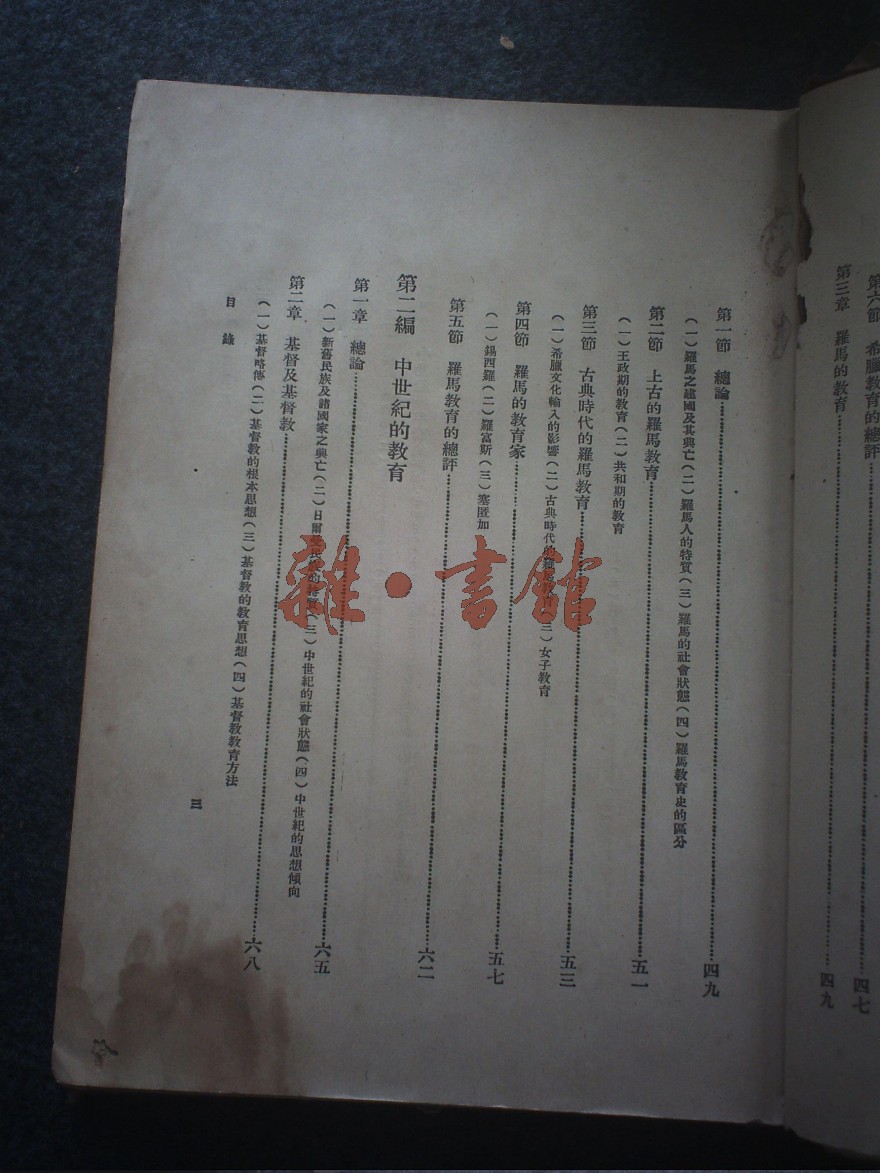 第六節 希臘教育的總評 四七
第三章 羅馬的教育 四九
第一節 總論 四九
(一)羅馬之建國及其興亡(二)羅馬人的特質(三)羅馬的社會狀態(四)羅馬教育史的區分
第二節 上古的羅馬教育 五一
(一)王政期的教育(二)共和期的教育
第三節 古典時代的羅馬教育 五三
(一)希臘文化輸入的影響(二)古典時代的羅馬教育(三)女子教育
第四節 羅馬的教育家 五七
(一)錫西羅(二)羅富斯(三)塞匿加
第五節 羅馬教育的總評 六二
第二編 中世紀的教育
第一章 總論 六五
(一)新舊民族及諸國家之興亡(二)日爾民族的特質(三)中世紀的社會狀態(四)中世紀的思想傾向
第二章 基督及基督教 六八
(一)基督略傳(二)基督教的根本思想(三)基督教的教育思想(四)基督教教育方法
目錄
三
雜·書館